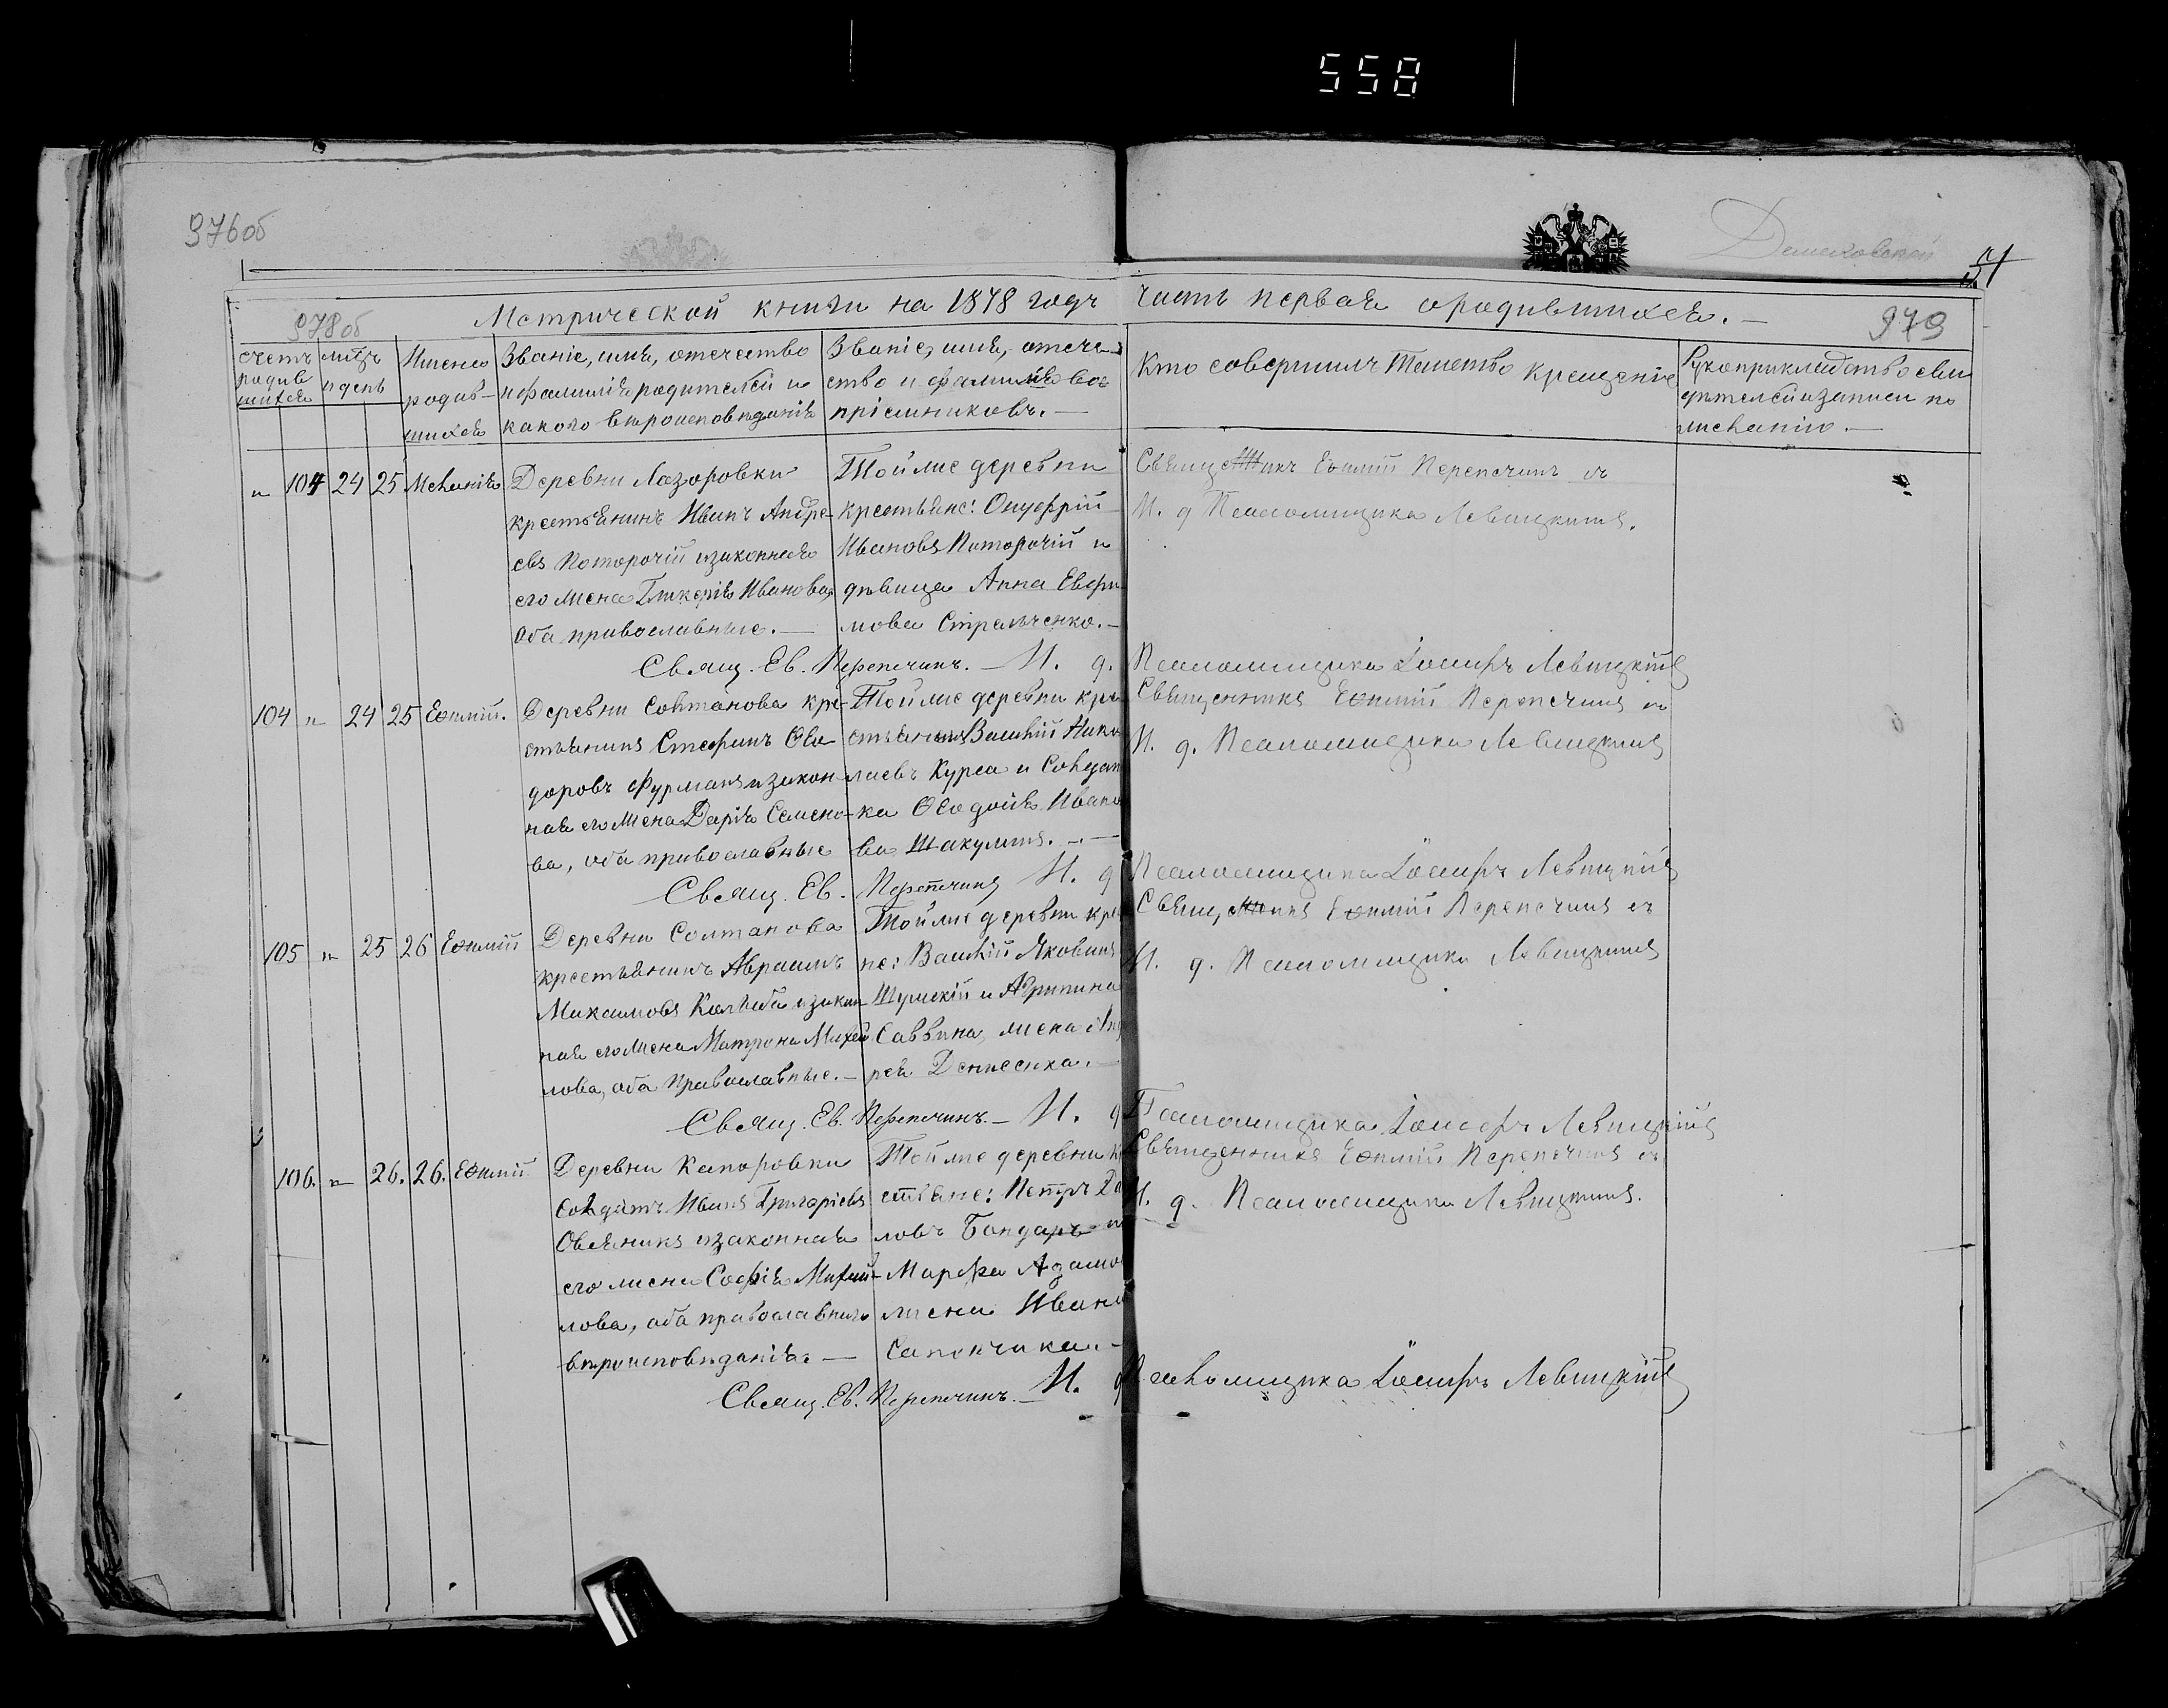 558
376об
Демековской
51
Метрической книги на 1878 годъ часть первая о родившихся. —
378об
379
счетъ родив шихся
мѣцъ и день
Имена родив- шихся
Званіе, имя, отечество и фамилія родителей и какого вѣроисповѣданія
Званіе, имя, отече- ство и фамилія вос пріемниковъ. —
Кто совершилъ Таинство крещенія
Рукоприкладство сви дѣтелей и записи по желанію. —
„ 104 24 25 Меланія
Деревни Лазоровки
крестьянинъ Иванъ Андре-
евъ Поторочій и законная
его жена Гликерія Иванова,
оба православные. —
Той же деревни
крестьяне: Онуфрій
Ивановъ Поторочій и
дѣвица Анна Евфи
мова Стрельченко. —
Священникъ Евѳимій Перепечинъ съ
И. д Псаломщика Левицкимъ.
Свящ. Ев. Перепечинъ. — И. д. Псаломщика Іосифъ Левицкій
104 „ 24 25 Евѳимій.
Деревни Солтанова кре-
стьянинъ Стефанъ Ѳео
доровъ Фурманъ и закон
ная его жена Дарія Семено-
ва, оба православные
Той же деревни кре
стьянинъ Василій Нико
лаевъ Курса и Солдат
ка Ѳеодосія Ивано
ва Шакулина. —
Священникъ Евѳимій Перепечинъ съ
И. д. Псаломщика Левицкимъ
Свящ. Ев. Перепечинъ И. д Псаломщика Іосифъ Левицкій
105 „ 25 26 Евѳимій
Деревни Солтанова
крестьянинъ Авраамъ
Максимовъ Кольба и закон
ная его жена Матрона Михай
лова, оба православные. —
Той же деревни кре
не: Василій Яковинъ
Шумскій и Агрипина
Саввина, жена Анд
рея Денисенка. —
Священникъ Евѳимій Перепечинъ съ
И. д. Псаломщика Левицкимъ
Свящ. Ев. Перепечинъ. — И. д Псаломщика Іосифъ Левицкій
106. „ 26. 26. Евѳимій
Деревни Капоровки
Солдатъ Иванъ Григоріевъ
Овсяникъ и законная
его жена Софія Михай-
лова, оба православнаго
вѣроисповѣданія. —
Той же деревни к
стьяне: Петръ Да
ловъ Бондарь и
Марфа Адамо
жена Ивана
Сапончика. —
Священникъ Евѳимій Перепечинъ съ
И. д. Псаломщика Левицкимъ.
Свящ. Ев. Перепечинъ. — И. д Псаломщика Іосифъ Левицкій